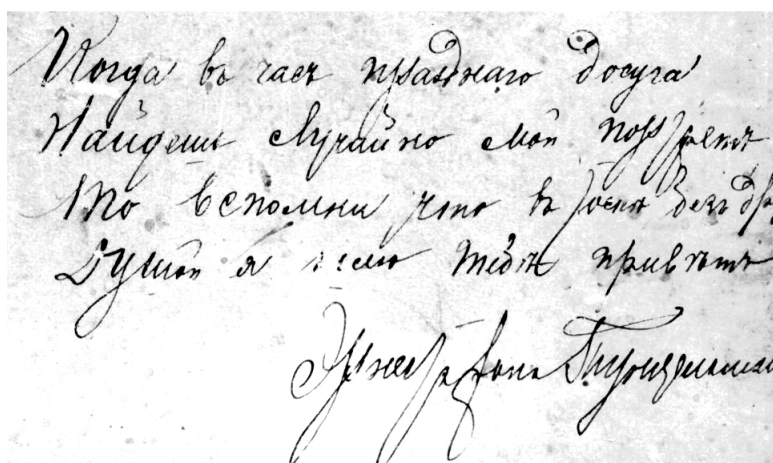 Когда въ часъ празднаго досуга
Найдешь случайно мой портретъ
То вспомни что въ безъ
Душой я шлю тебѣ приветъ